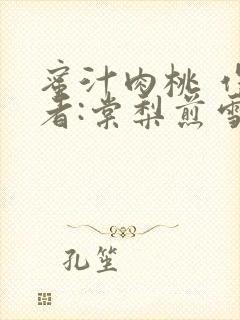 蜜汁肉桃 作
者:棠梨煎雪
孔笙